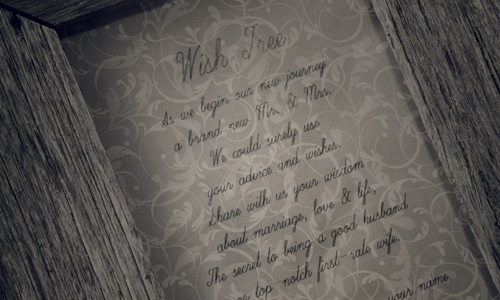 Wish Tree
As we begin our new journey
a brand new Mr. & Mrs.
We could surely use
your advice and wishes.
Share with us your wisdom
about marriage, love & life,
The secret to being a good husband
or top notch first-rate wife.
your name